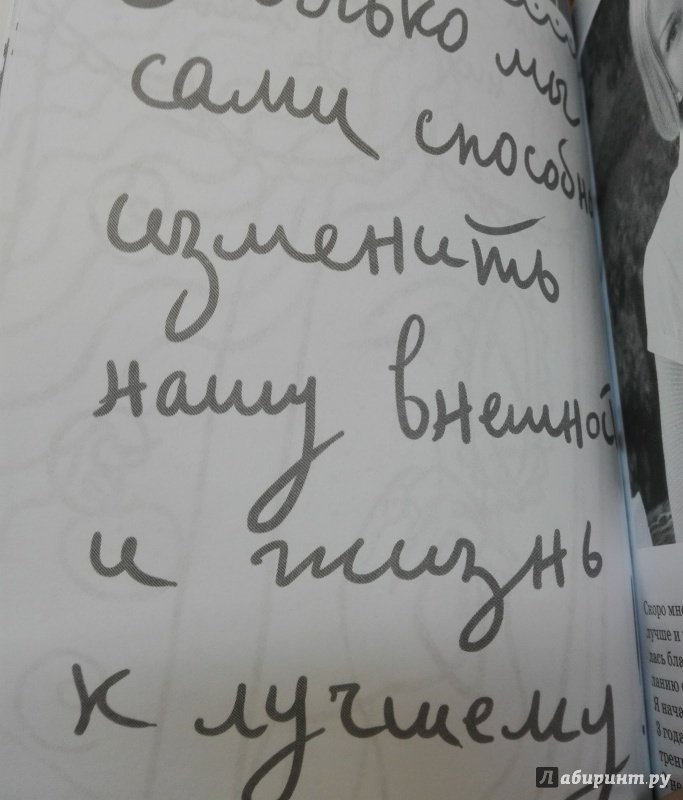 мы
сами способн
изменить
нашу внешно
и жизнь
к лучшему.
Скоро мн
лучше и
лась бла
ланию
Я нача
3 года
трен
не
Лабиринт.ру